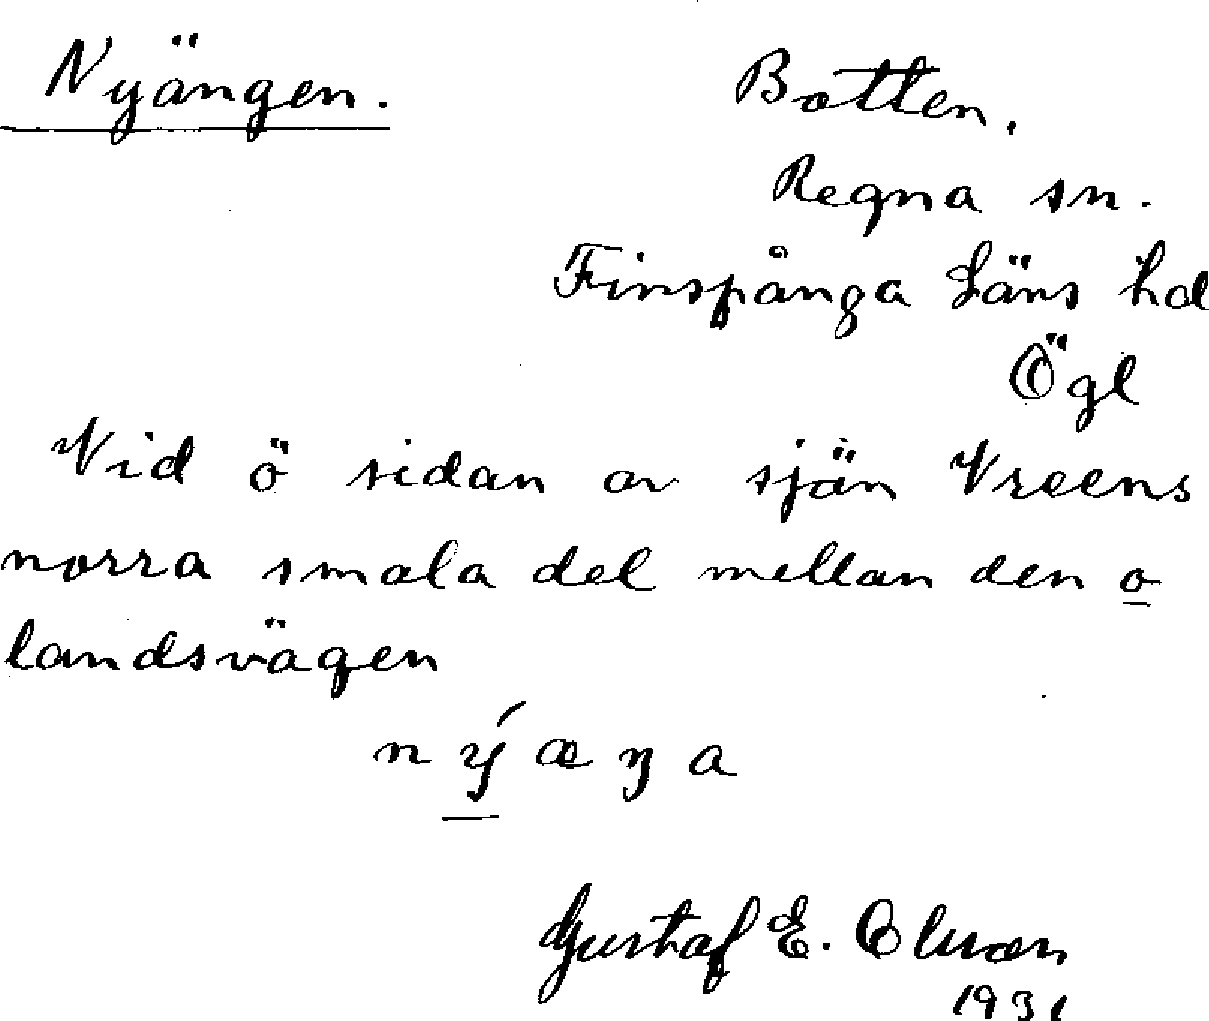 Nyängen.
Botten.
Regna sn.
Finspånga Läns hd
Ögl
Vid ö sidan av sjön Vreens
norra smala del mellan den o
landsvägen
n ý æ ŋ a
Gustaf E. Olsson
1931